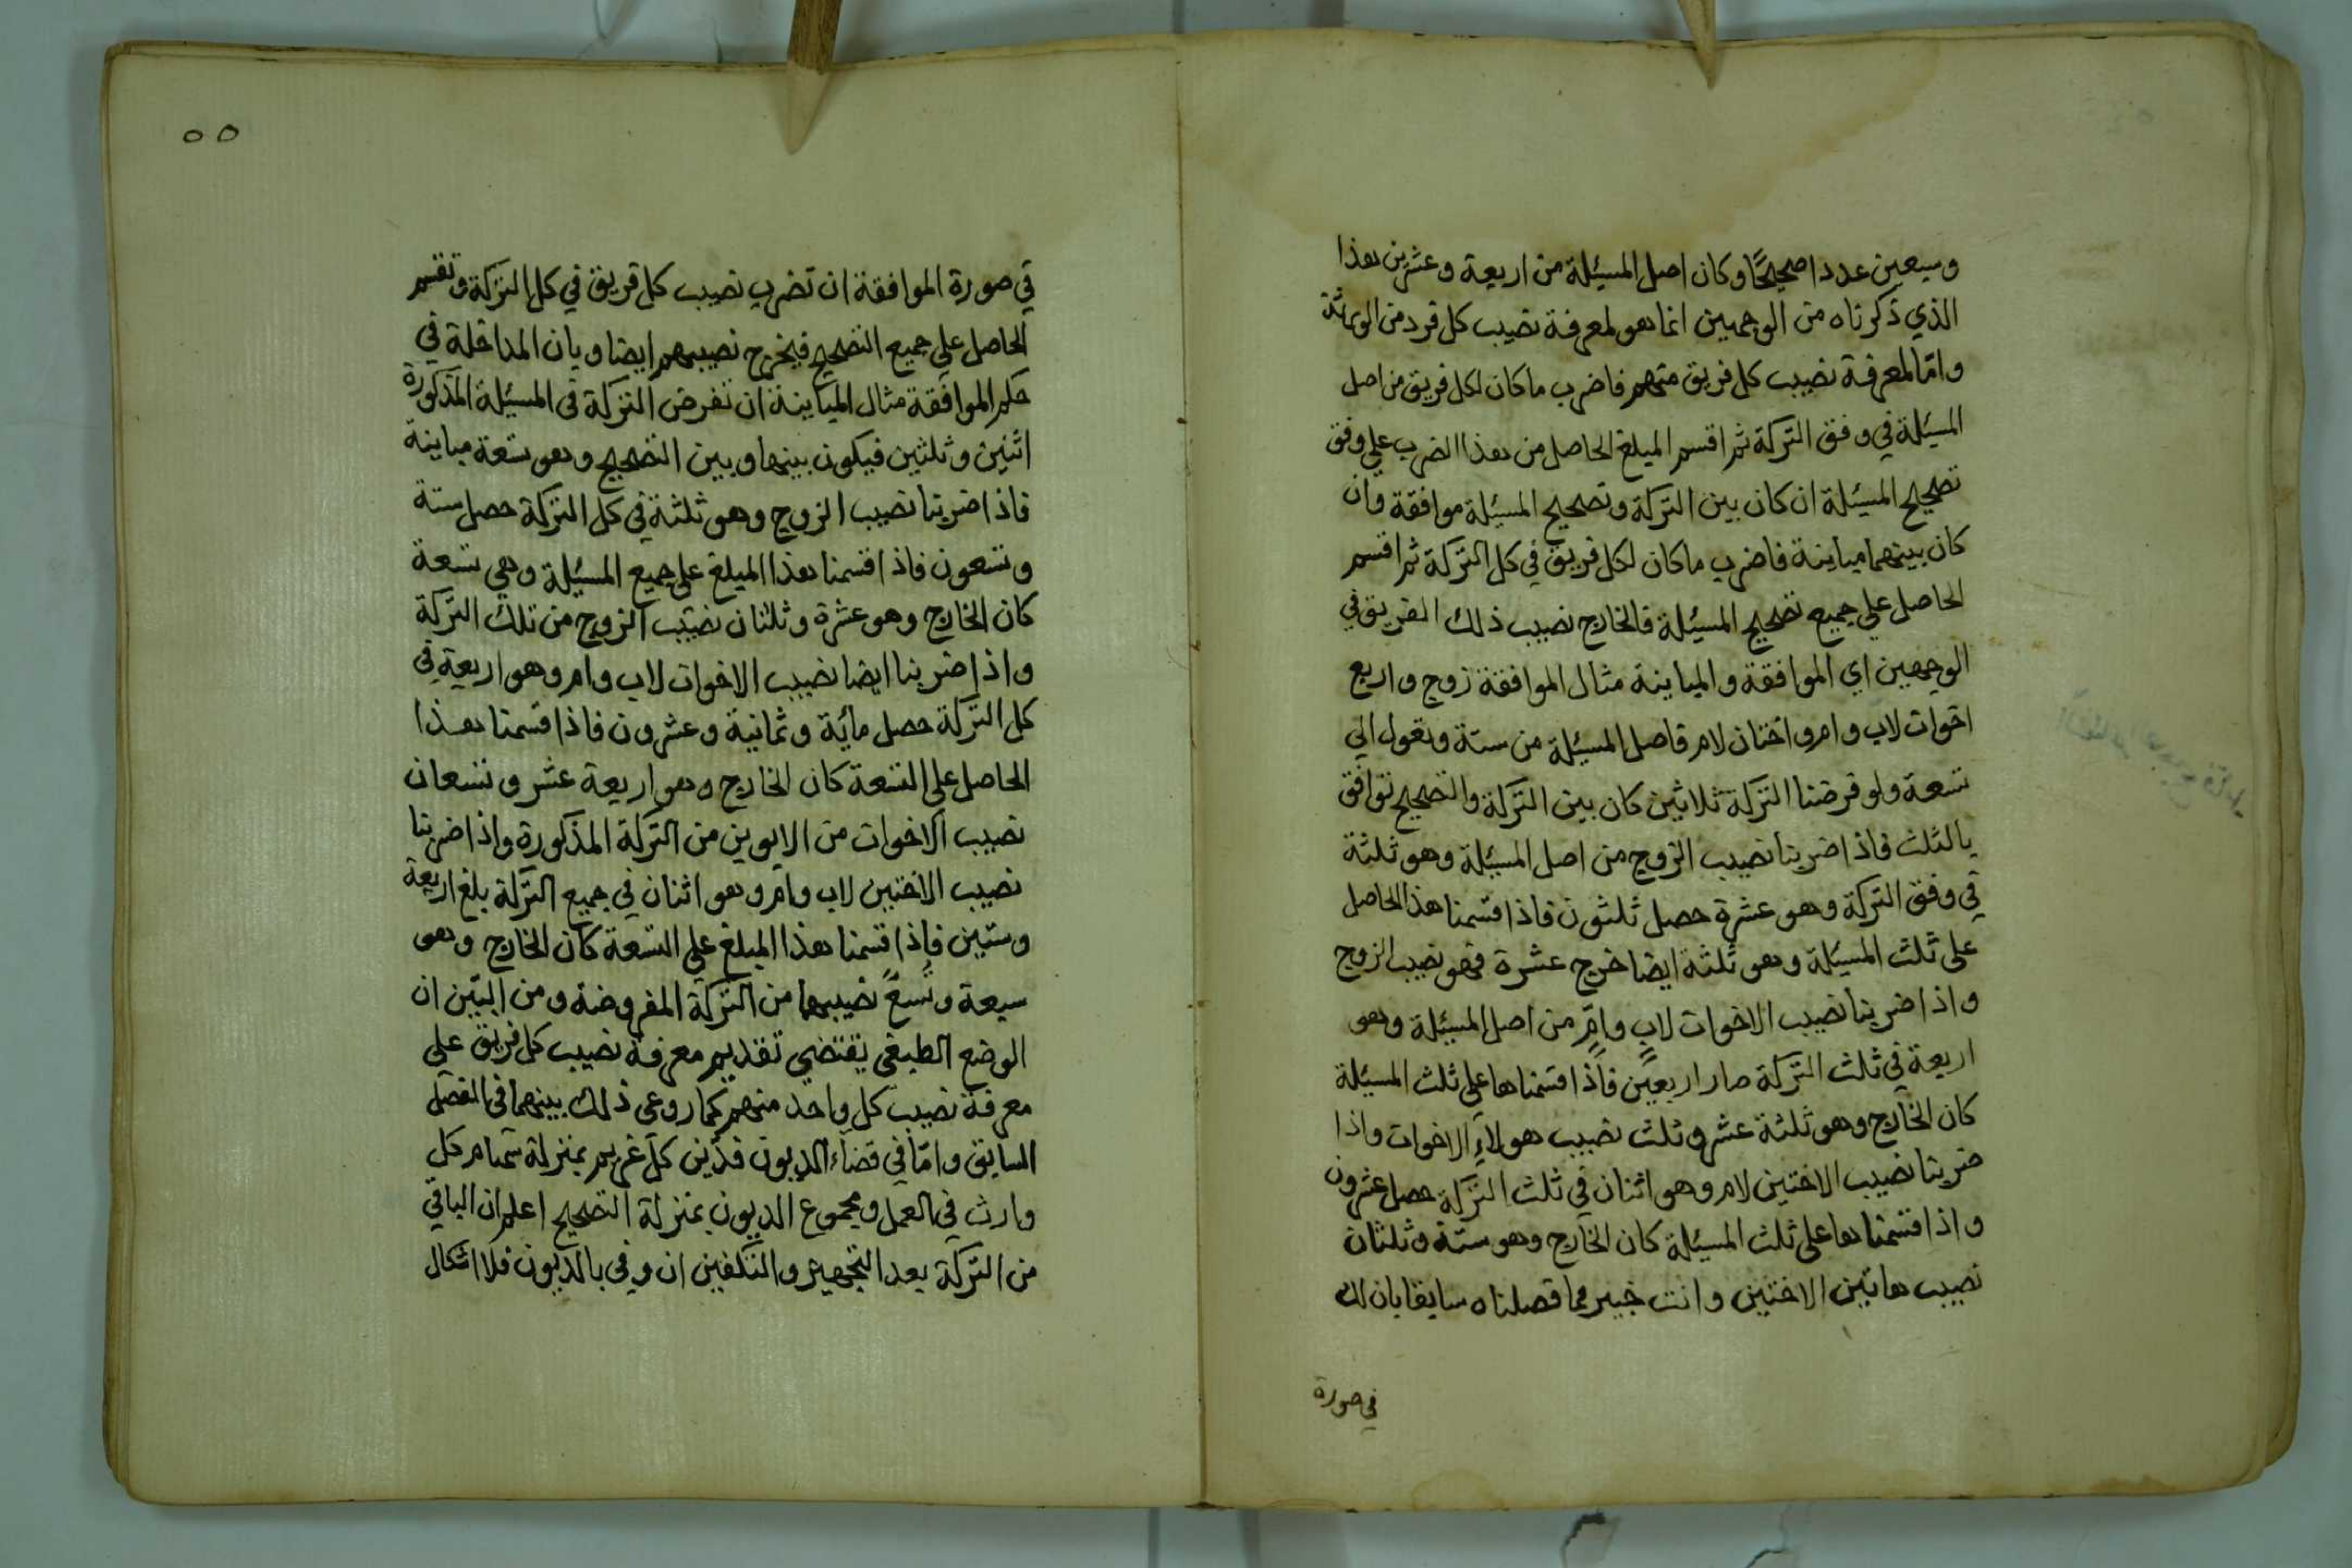 وسبعين عددا صحيحًا وكان اصل المسئلة من اربعة وعشرين هذا
الذي ذكرناه من الوجهين انما هو لمعرفة نصيب كل فرد من الورثة
وامّا لمعرفة نصيب كل فريق منهم فاضرب ما كان لكل فريق من اصل
المسئلة في وفق التركة ثم اقسم المبلغ الحاصل من هذا الضرب علي وفق
تصحيح المسئلة ان كان بين التركة وتصحيح المسئلة موافقة وان
كان بينهما مباينة فاضرب ما كان لكل فريق في كل التركة ثم اقسم
الحاصل علي جميع تصحيح المسئلة فالخارج نصيب ذلك الفريق في
الوجهين اي الموافقة والمباينة مثال الموافقة زوج واربع
اخوات لاب وام واختان لام فاصل المسئلة من ستة وتعول الي
تسعة ولو فرضنا التركة ثلاثين كان بين التركة والتصحيح توافق
بالثلث فاذا ضربنا نصيب الزوج من اصل المسئلة وهو ثلثة
في وفق التركة وهو عشرة حصل ثلثون فاذا قسمنا هذا الحاصل
على ثلث المسئلة وهو ثلثة ايضا خرج عشرة فهو نصيب الزوج
واذا ضربنا نصيب الاخوات لابٍ وامٍّ من اصل المسئلة وهو
اربعة في ثلث التركة صار اربعين فاذا قسمناها على ثلث المسئلة
كان الخارج وهو ثلثة عشر وثلث نصيب هولاءِ الاخوات واذا
ضربنا نصيب الاختين لام وهو اثنان في ثلث التركة حصل عشرون
واذا قسمناها على ثلث المسئلة كان الخارج وهو ستة وثلثان
نصيب هاتين الاختين وانت خبير مما فصلناه سابقا بان لك
في صورة
٥٥
في صورة الموافقة ان تضرب نصيب كل فريق في كل التركة وتقسم
الحاصل علي جميع التصحيح فيخرج نصيبهم ايضا وبان المداخلة في
حكم الموافقة مثال المباينة ان تفرض التركة في المسئلة المذكورة
اثنين وثلثين فيكون بينها وبين التصحيح وهو تسعة مباينة
فاذا ضربنا نصيب الزوج وهو ثلثة في كل التركة حصل ستة
وتسعون فاذا قسمنا هذا المبلغ علي جميع المسئلة وهي تسعة
كان الخارج وهو عشرة وثلثان نصيب الزوج من تلك التركة
واذا ضربنا ايضا نصيب الاخوات لاب وام وهو اربعة في
كل التركة حصل مائة وثمانية وعشرون فاذا قسمنا هذا
الحاصل علي التسعة كان الخارج وهو اربعة عشر وتسعان
نصيب الاخوات من الابوين من التركة المذكورة واذا ضربنا
نصيب الاختين لاب وام وهو اثنان في جميع التركة بلغ اربعة
وستين فاذا قسمنا هذا المبلغ علي التسعة كان الخارج وهو
سبعة وتُسعً نصيبهما من التركة المفروضة ومن البيّن ان
الوضع الطبعي يقتضي تقديم معرفة نصيب كل فريق علي
معرفة نصيب كل واحد منهم كما روعي ذلك بينهما في الفصل
السابق وامّا في قضاء الديون فدَين كل غريم بمنزلة سهام كل
وارث في العمل ومجموع الديون بمنزلة التصحيح اعلم ان الباقي
من التركة بعد التجهيز والتكفين ان وفى بالديون فلا اشكال